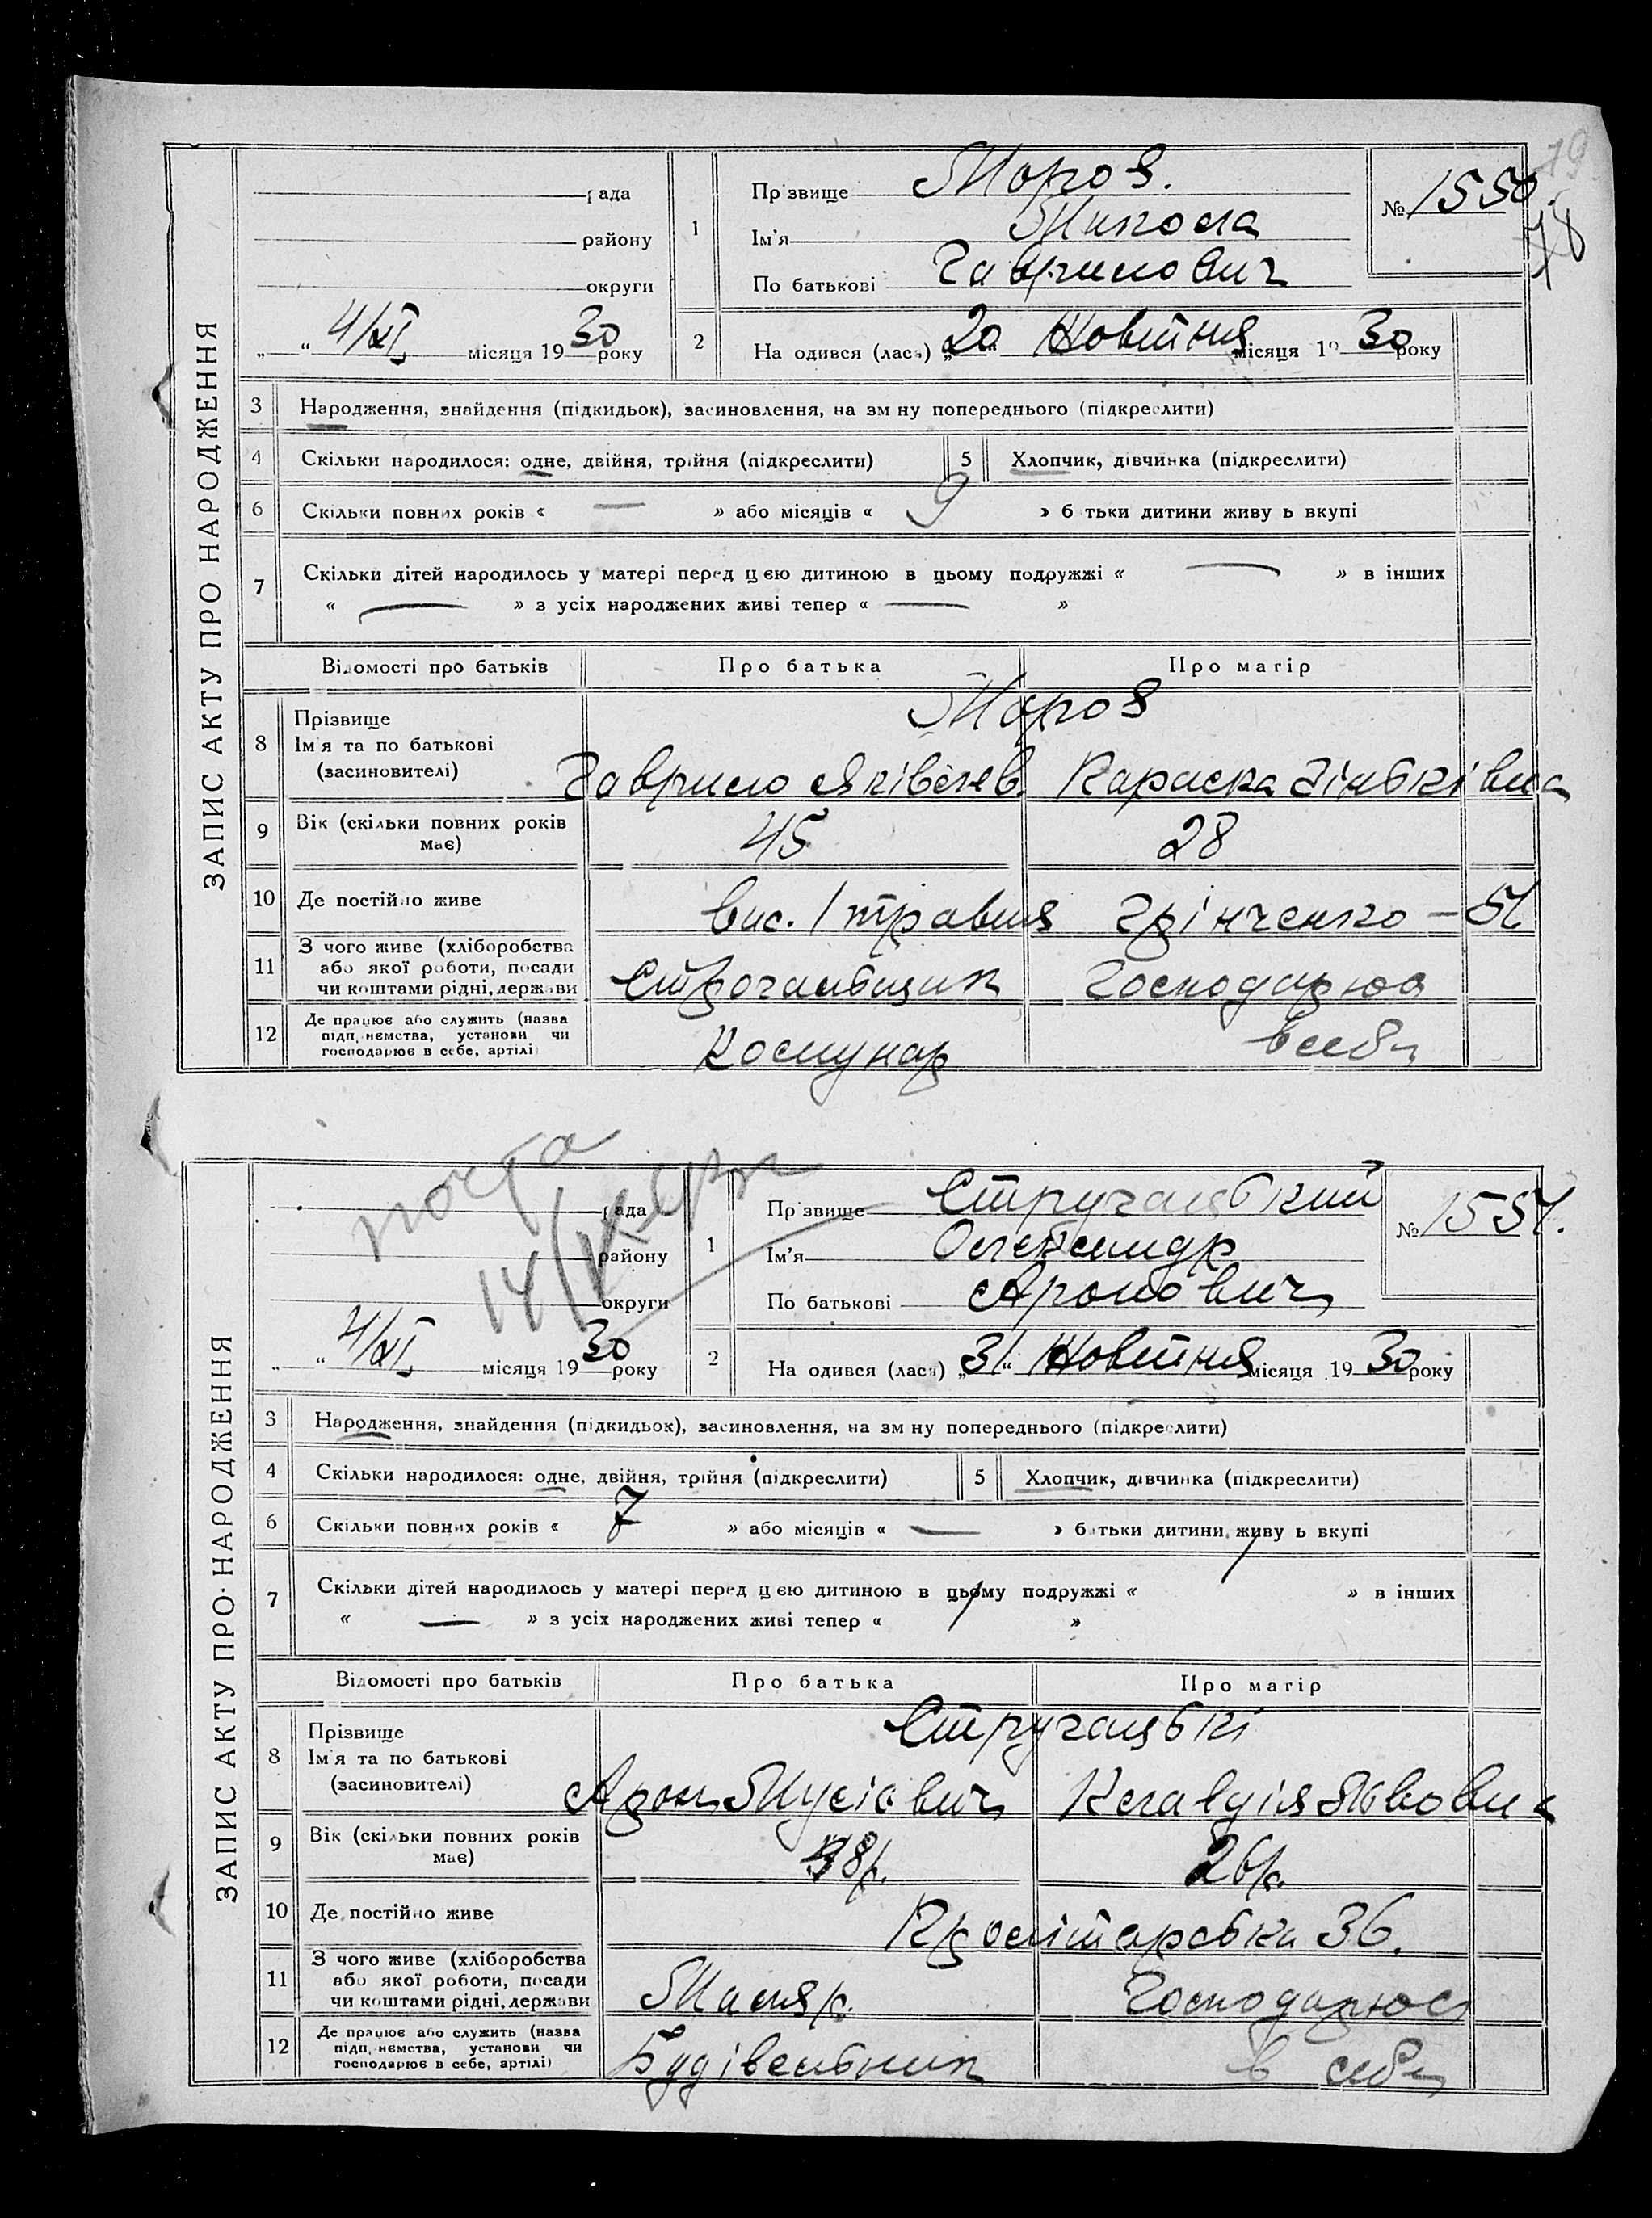 ЗАПИС АКТУ ПРО НАРОДЖЕННЯ
рада
району
округи
„ “ 4/XI місяця 1930 року
1
Пр звище Мороз.
Ім’я Микола
По батькові Гаврилович
№ 1550.
78
2 На одився (лась) „20“ Жовтня місяця 1930 року
3 Народження, знайдення (підкидьок), засиновлення, на зм ну попереднього (підкреслити)
4 Скільки народилося: одне, двійня, трійня (підкреслити) 5 Хлопчик, дівчинка (підкреслити)
6 Скільки повних років « — » або місяців « 9 » б тьки дитини живу ь вкупі
7 Скільки дітей народилось у матері перед цією дитиною в цьому подружжі « — » в інших
« — » з усіх народжених живі тепер « — »
Відомості про батьків Про батька Про матір
8 Прізвище Мороз
Ім'я та по батькові
(засиновителі) Гаврило Яківлев. Параска
9 Вік (скільки повних років має) 45 28
10 Де постійно живе вис. 1 травня Грінченко – 51
11 З чого живе (хліборобства або якої роботи, посади чи коштами рідні, держави Строгальщик Господарює
12 Де працює або служить (назва підп, ємства, установи чи господарює в себе, артілі) Комунар в себе
пошта
14/
ЗАПИС АКТУ ПРО НАРОДЖЕННЯ
рада
району
округи
„ “ 4/XI місяця 1930 року
1
Пр звище Стругацький
Ім’я Олександр
По батькові Аронович
№ 1551.
2 На одився (лась) „31“ Жовтня місяця 1930 року
3 Народження, знайдення (підкидьок), засиновлення, на зм ну попереднього (підкреслити)
4 Скільки народилося: одне, двійня, трійня (підкреслити) 5 Хлопчик, дівчинка (підкреслити)
6 Скільки повних років « 7 » або місяців « — » батьки дитини живу ь вкупі
7 Скільки дітей народилось у матері перед цією дитиною в цьому подружжі « 1 » в інших
« — » з усіх народжених живі тепер « 1 »
Відомості про батьків Про батька Про матір
8 Прізвище Стругацькі
Ім'я та по батькові
(засиновителі) Арон Мусієвич Клавдія
9 Вік (скільки повних років має) 38р. 26р.
10 Де постійно живе Кромітарська 36.
11 З чого живе (хліборобства або якої роботи, посади чи коштами рідні, держави Маляр. Господарює
12 Де працює або служить (назва підп, ємства, установи чи господарює в себе, артілі) Будівельник в себе